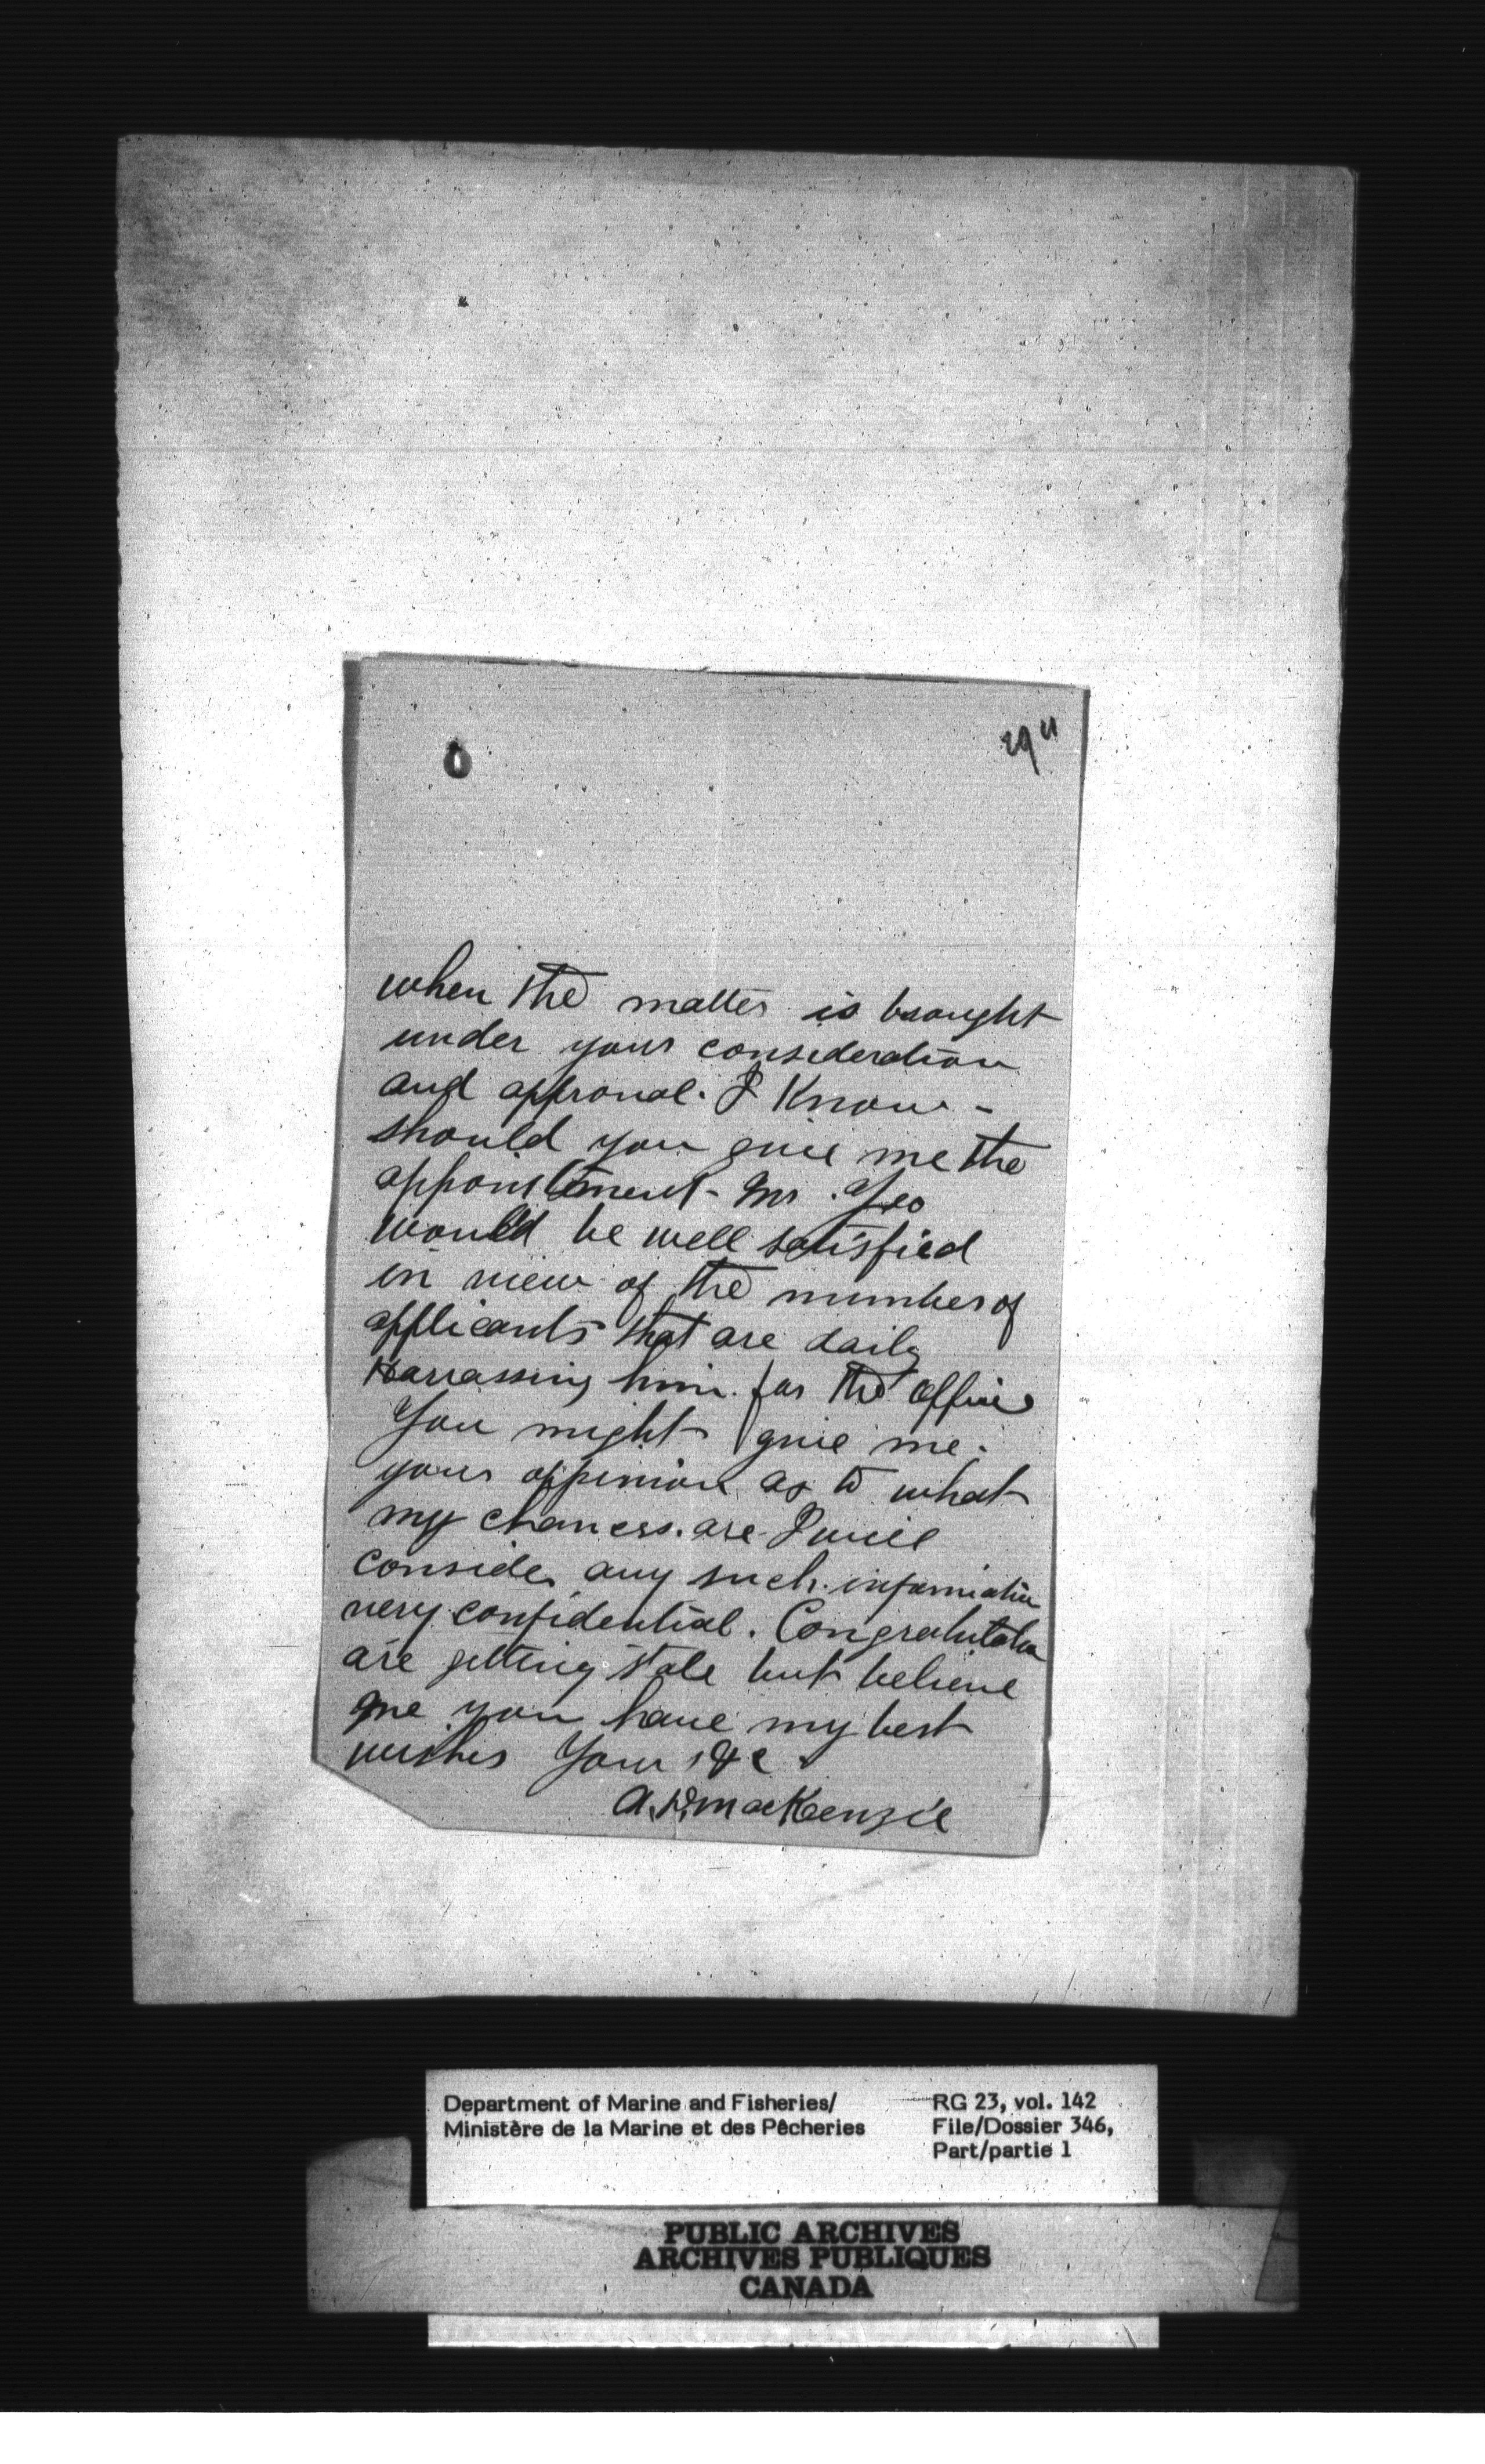 29"
when the matter is brought
under your consideration
and approval. I Know -
should you give me the
appointment - Mr. Yeo
would be well satisfied
in view of the number of
applicants that are daily
Harrassing him. for the office
You might give me.
your oppinion as to what
my chances. are I will
consider any such. information
very confidential. Congratulation
are getting stale but believe
me you have my best
wishes Your &c.
A.D. MacKenzie
Department of Marine and Fisheries/ RG 23, vol. 142
Ministère de la Marine et des Pêcheries File/Dossier 346,
Part/partie 1
PUBLIC ARCHIVES
ARCHIVES PUBLIQUES
CANADA